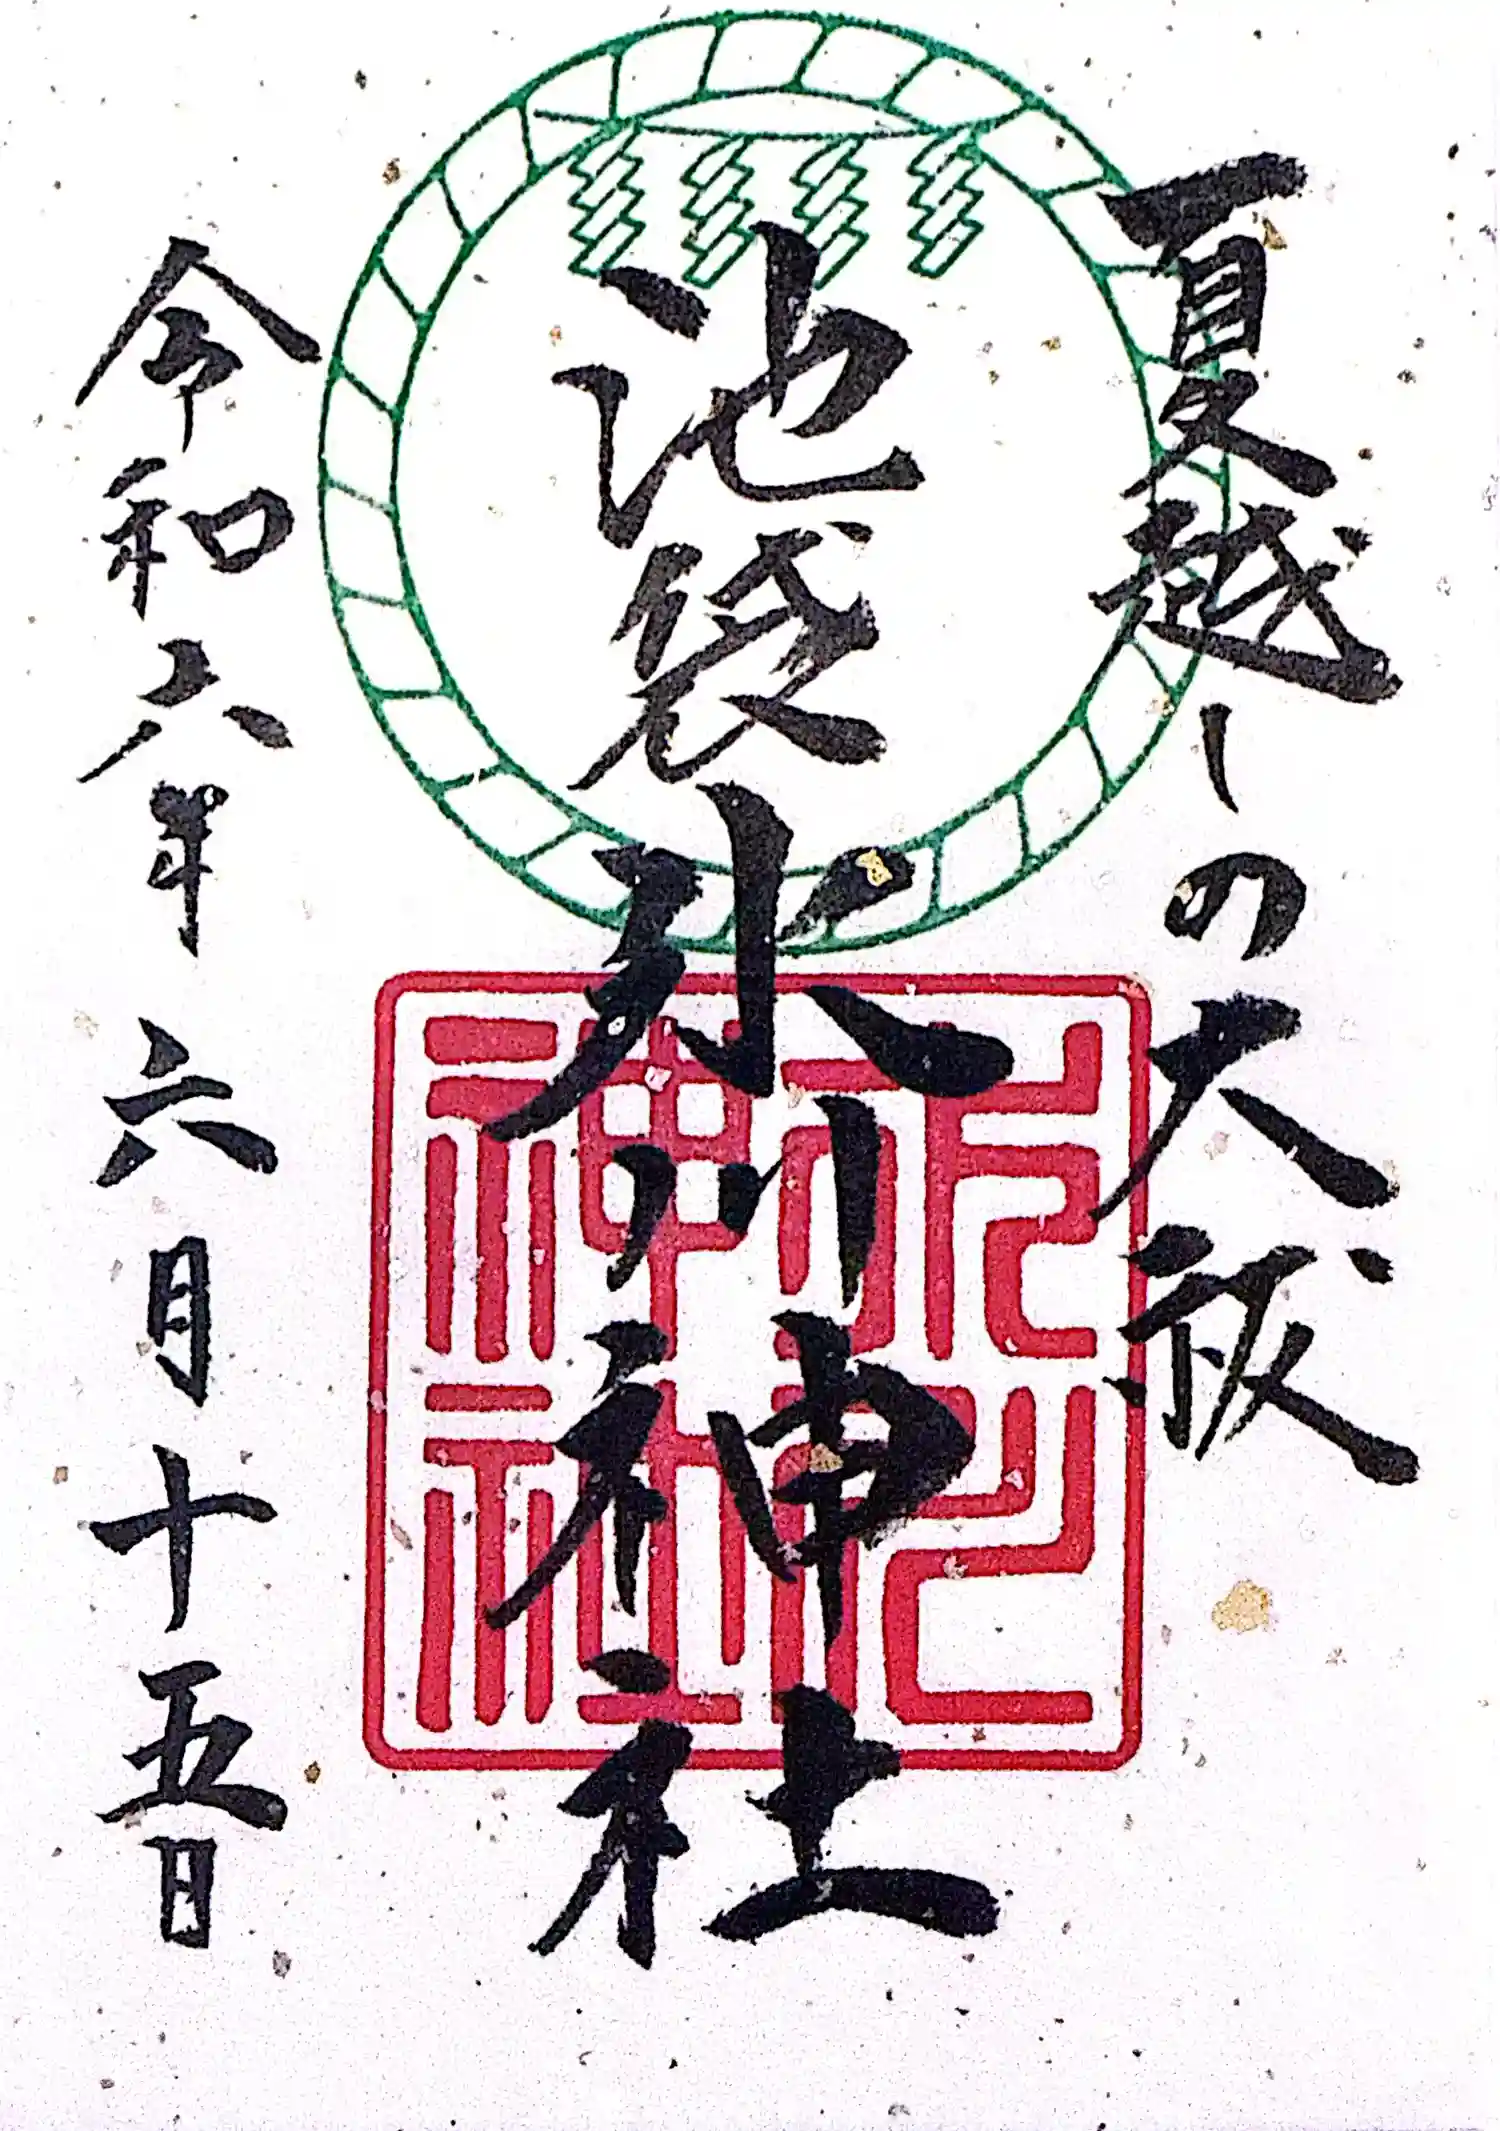 夏越しの大祓
池袋氷川神社
令和六年 六月十五日
神社